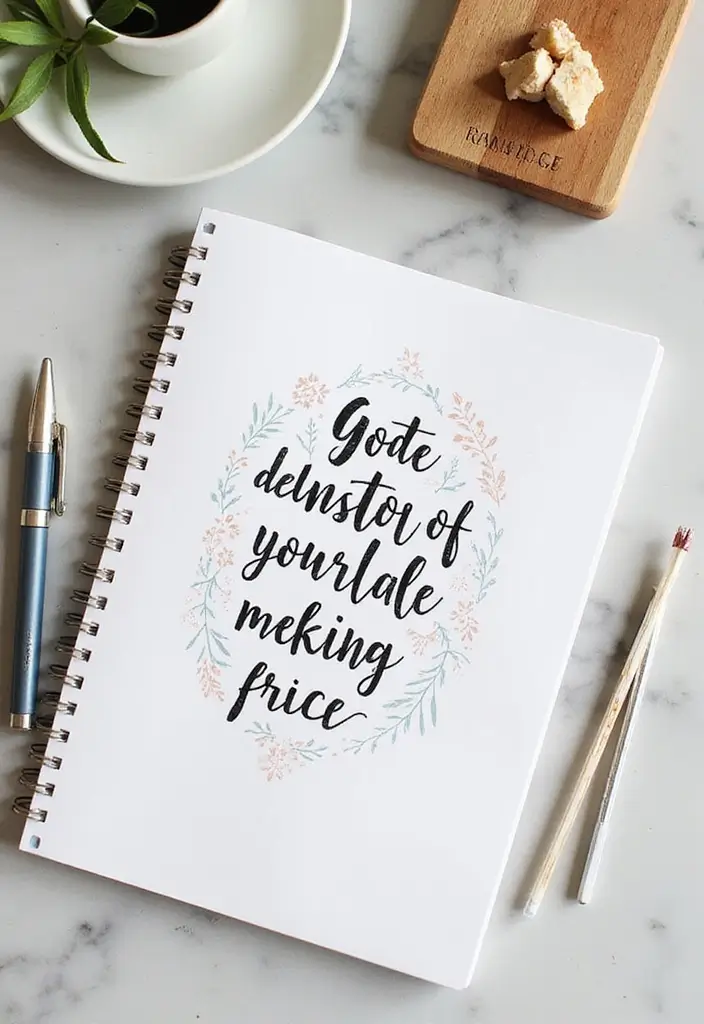 Gode
delnstor of
yourlale
meking
frice